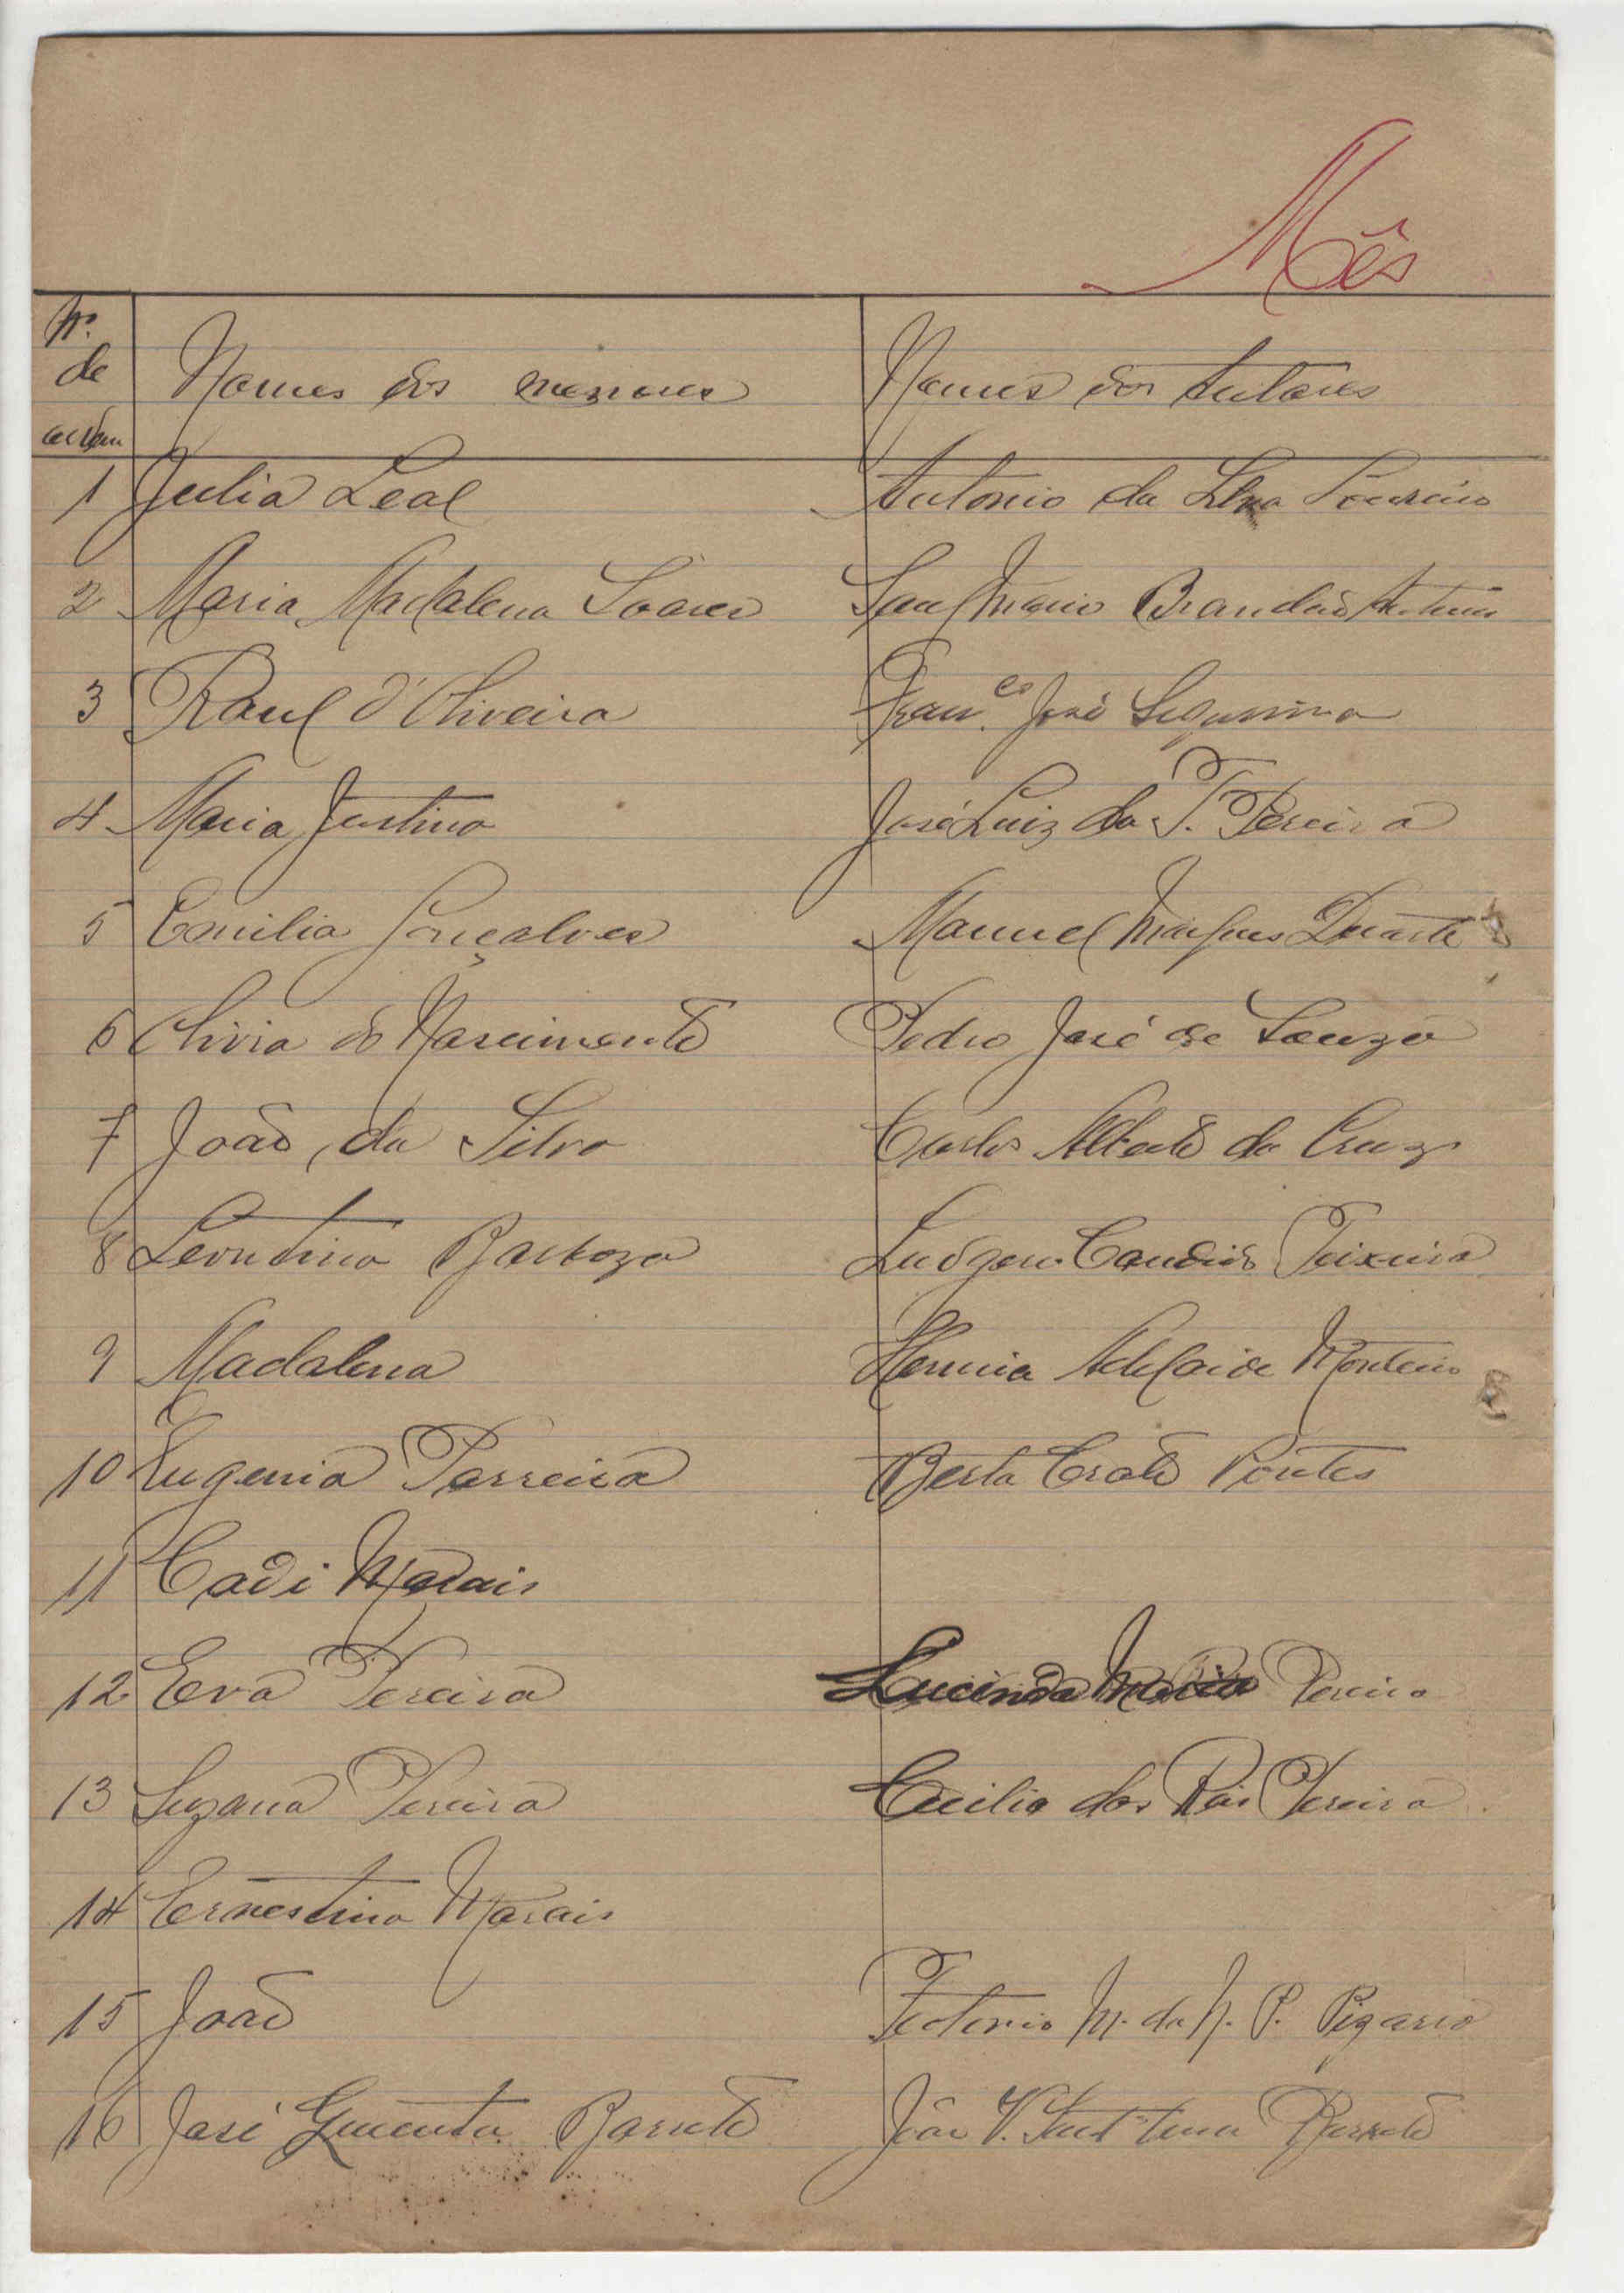 Mês
Nº de ordem Nomes dos menores Nomes dos tutores
1 Julia Leal Antonio da Silva Loureiro
2 Maria Madalena Soares Brandão Antunes
3 Raul d'Oliveira Fran.co José Sequeira
4 Maria Justina José Luiz da T. Pereira
5 Emilia Gonçalves Manuel Marques Duarte
6 Olivia do Nascimento Pedro José de Souza
7 João da Silva Carlos Alberto da Cruz
8 Leontina Barboza Ludgero Candido Teixeira
9 Madalena Herminia Adelaide Monteiro
10 Eugenia Parreira Berta Crato Pontes
11 Cadi Morais
12 Eva Pereira Lucinda Maria Pereira
13 Suzana Pereira Cecilia dos Reis Pereira
14 Ernestina Morais
15 João M. da N. P. Pizarro
16 José Barreto João V. Sant'Anna Barreto